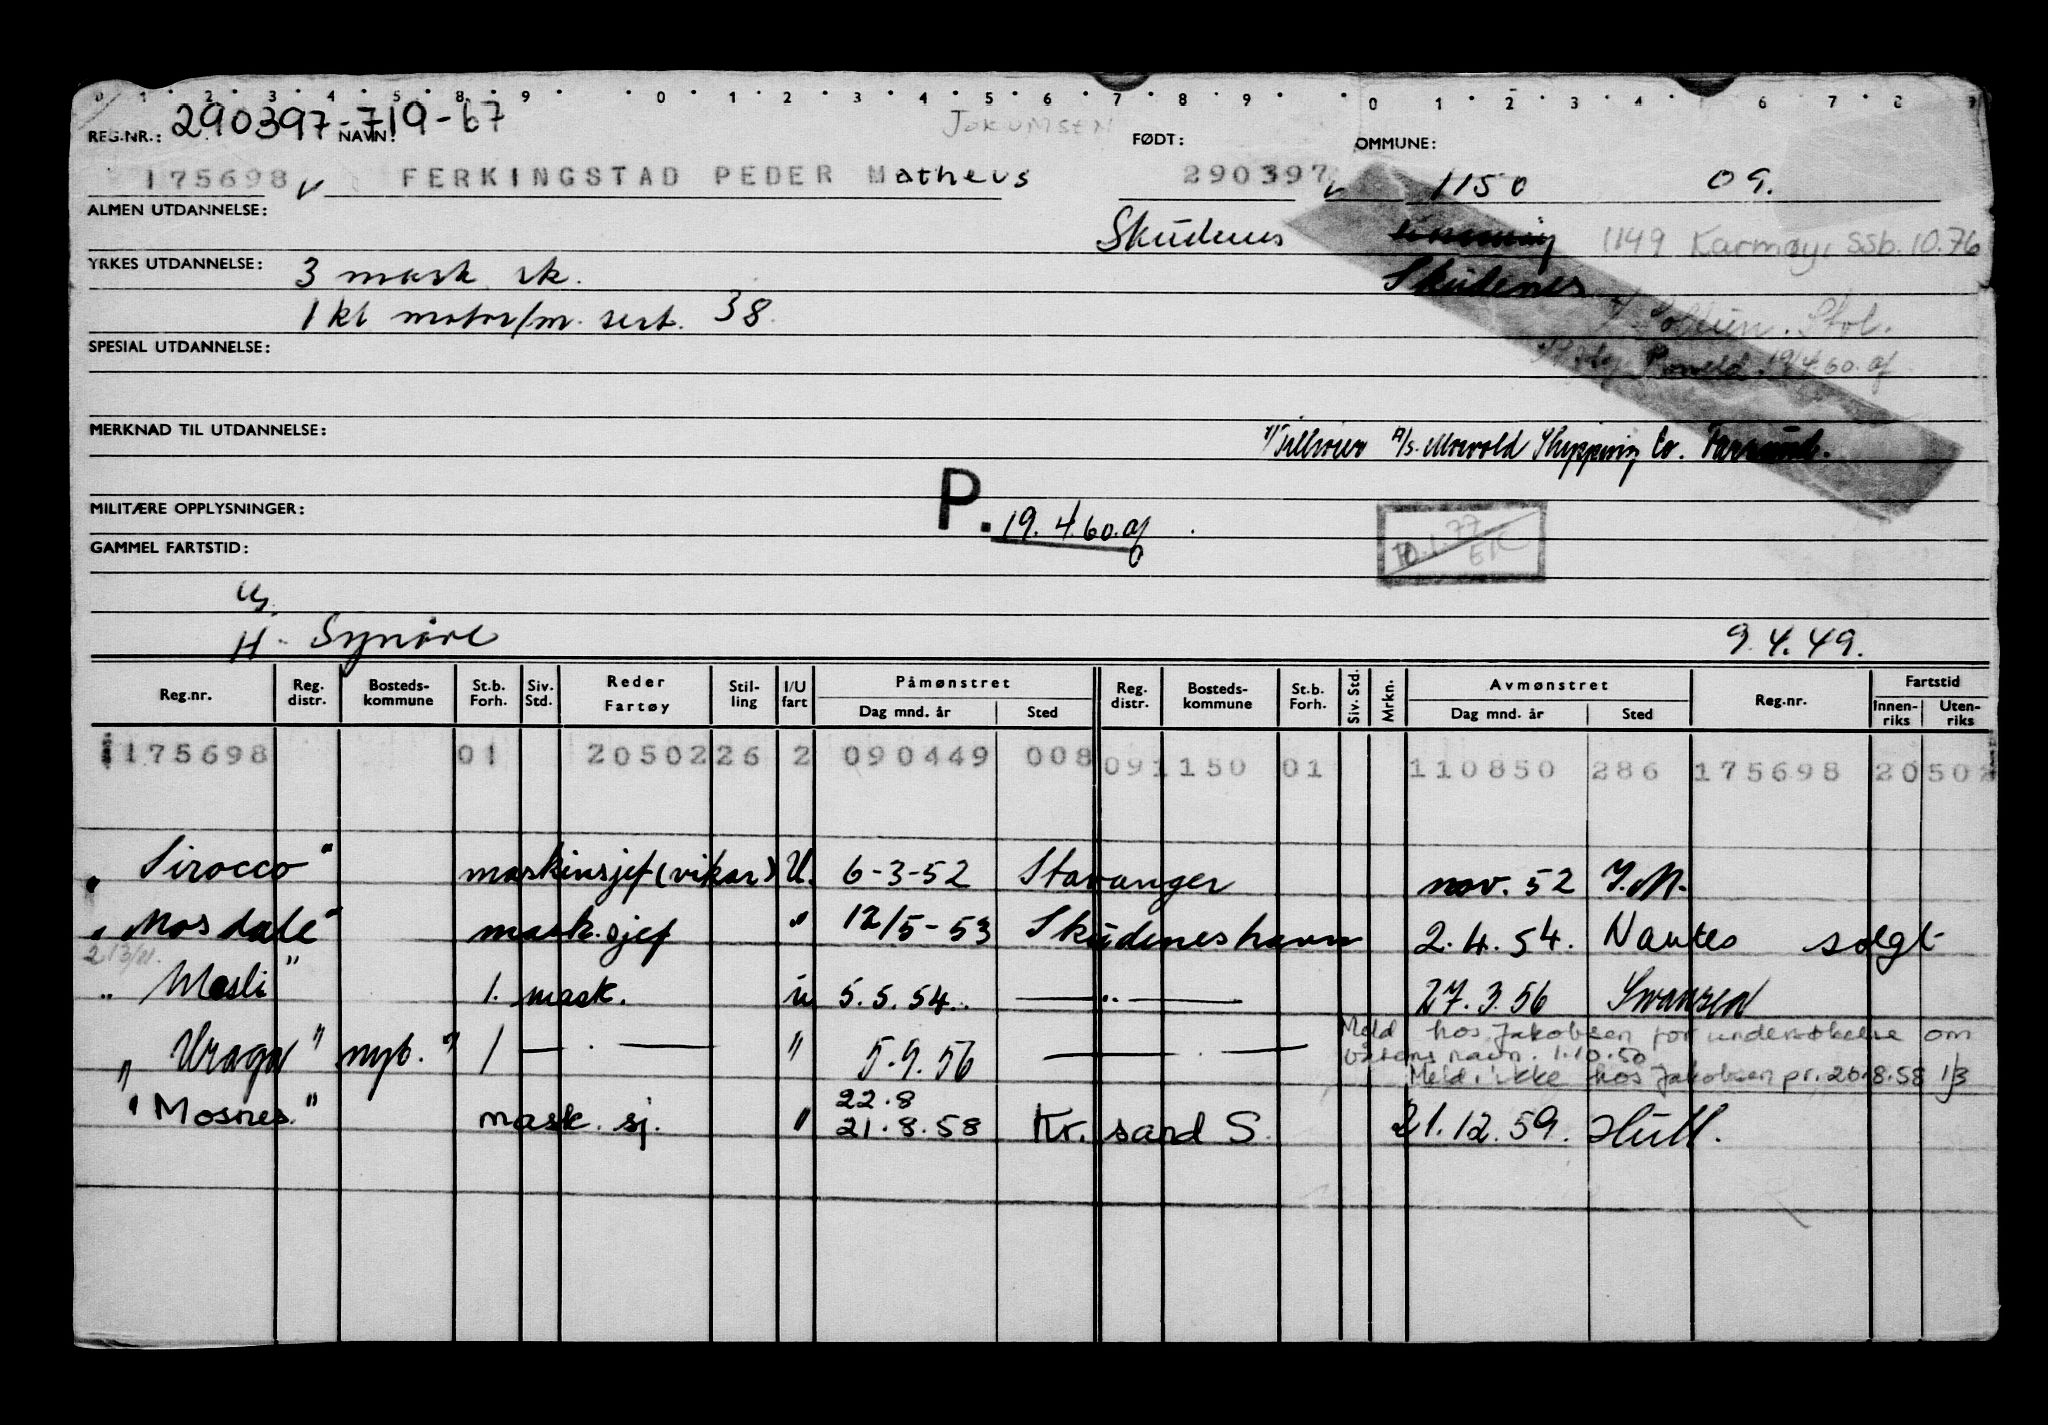 0 1 2 3 4 5 8 9 0 1 2 3 4 5 6 7 8 9 0 1 2 3 4 6 7 8 9
REG.NR.: 290397-719-67 NAVN: Jokumsen FØDT: OMMUNE:
175698 v FERKINGSTAD PEDER Matheus 290397 v 1150 09.
ALMEN UTDANNELSE:
Skudenes 1149 Karmøy, ssb. 10.76
YRKES UTDANNELSE: 3 mask. sk. Skudenes
1 kl motor/m. sert. 38
SPESIAL UTDANNELSE:
19/4 60. af
MERKNAD TIL UTDANNELSE: A/s. Mosvold Shipping Co. Farsund.
MILITÆRE OPPLYSNINGER: P. 19.4.60. af
10.1.77
GAMMEL FARTSTID:
U.
H. Synøve 9.4.49.
Reg.nr. Reg. distr. Bosteds- kommune St.b. Forh. Siv. Std. Reder Fartøy Stil- ling I/U fart Påmønstret Dag mnd. år Sted Reg. distr. Bosteds- kommune St.b. Forh. Siv. Std. Mrkn. Avmønstret Dag mnd. år Sted Reg.nr. Fartstid Innen- riks Uten- riks
175698 01 20502 26 2 090449 008 09 1150 01 110850 286 175698 20502
"Sirocco" maskinsjef (vikar) U. 6-3-52 Stavanger nov. 52 I.M.
"Mosdale" mask.sjef " 12/5-53 Skudeneshavn 2.4.54. Nantes solgt
"Mosli" 1. mask. u 5.5.54. —"— 27.3.56 Swansea
"Uraga" nyb." 1 — . — " 5.9.56 — . —
Meld hos Jakobsen for undersøkelse om
båtens navn. 1.10.50
Meld. ikke hos Jakobsen pr. 20.8.58 1/3
"Mosnes." mask. sj. " 22.8 21.8.58 Kr. sand S. 21.12.59. Hull.